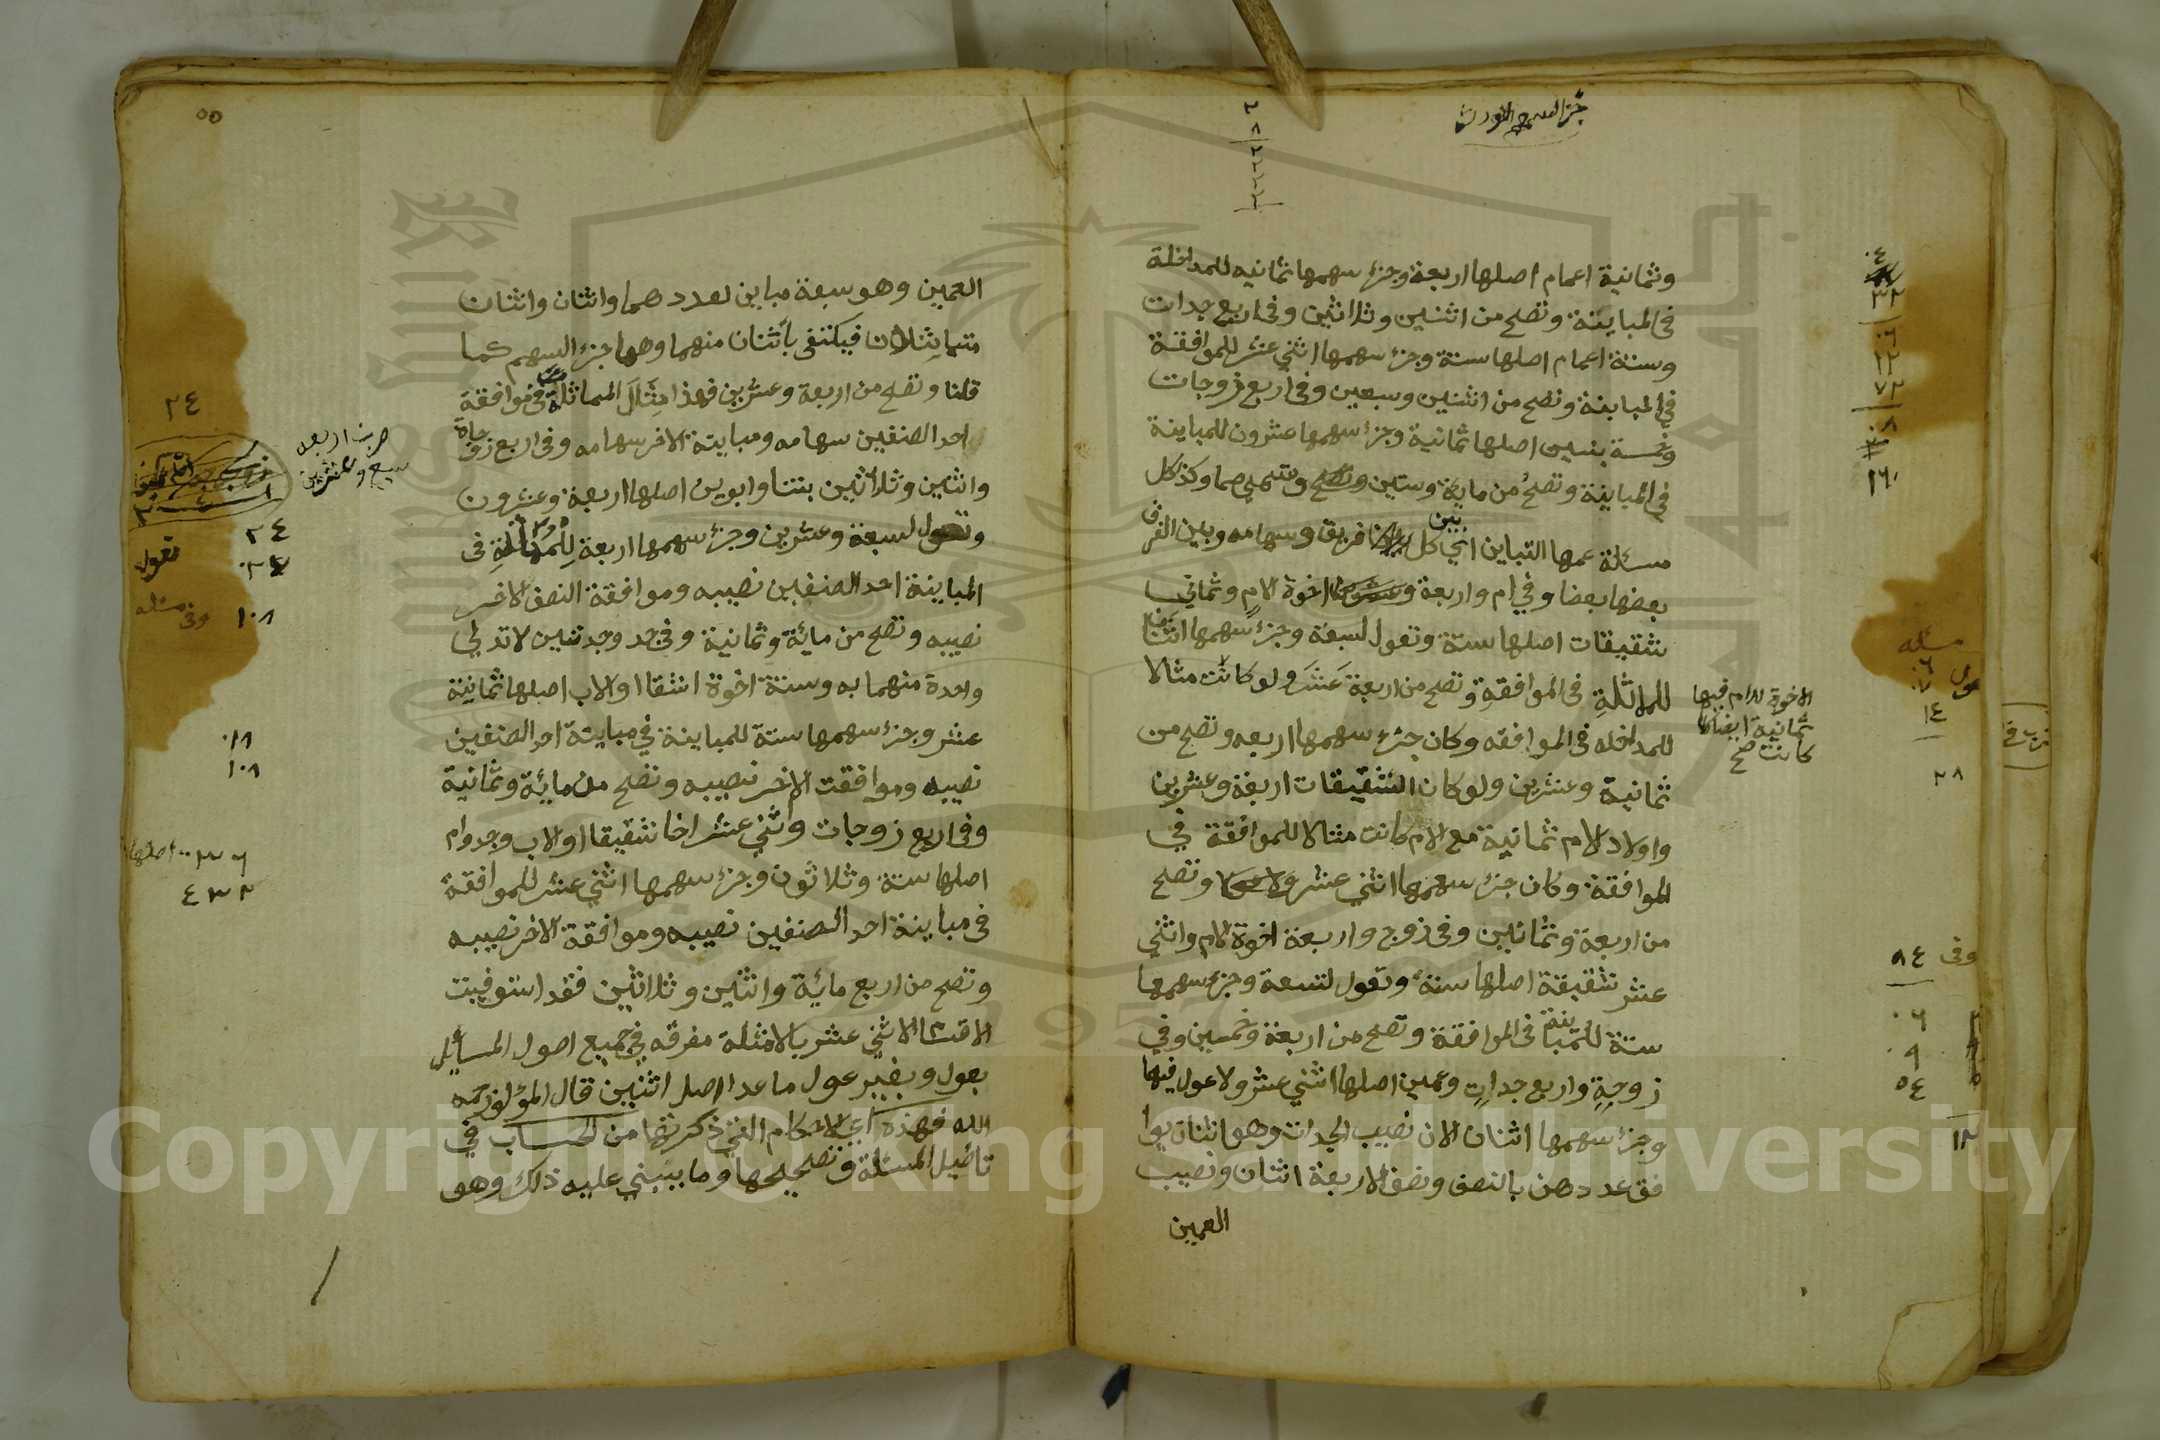 وثمانية اعمام اصلها اربعة وجزء سهمها ثمانيه للمداخلة
في المباينة وتصح من اثنين وثلاثين وفي اربع جدات
وستة اعمام اصلها ستة وجزء سهمها اثني عشر للموافقة
في المباينة وتصح من اثنين وسبعين وفي اربع زوجات
وخمسة بنين اصلها ثمانية وجزء سهمها عشرون للمباينة
في المباينة وتصح من ماية وستين وتسمي صما وكذا كل
مسئلة عمها التباين اي بين كل فريق وسهامه وبين الفرق
بعضها بعضا وفي ام واربعة اخوة لام وثماني
شقيقات اصلها ستة وتعول لسبعة وجزء سهمها اثنان
للماثلة في الموافقة وتصح من اربعة عشر ولو كانت مثالا
للمداخله في الموافقه وكان جزء سهمها اربعه وتصح من
ثمانية وعشرين ولو كان الشقيقات اربعة وعشرين
واولاد لام ثمانية مع الام كانت مثالا للموافقة في
الموافقة وكان جزء سهمها اثني عشر وتصح
من اربعة وثمانين وفي زوج واربعة اخوة لام واثني
عشر شقيقة اصلها ستة وتعول لتسعة وجزء سهمها
ستة للمباينة في الموافقة وتصح من اربعة وخمسين وفي
زوجة واربع جدات وعمين اصلها اثني عشر ولا عول فيها
وجزء سهمها اثنان لان نصيب الجدات وهو اثنان يوا
فق عددهن بالنصف ونصف الاربعة اثنان ونصيب
العمين
الاخوة للام فيها
ثمانية ايضا
كانت صح
مسئله
٠٦
٠٧
١٤
٢٨
وفي ٨٤
٠٦
٠٩
٥٤
٣٢
١٢
٧٢
١٦٠
٥٥
العمين وهو سبعة مباين لعددهما واثنان واثنان
متماثلان فيكتفي باثنان منهما وهما جزء السهم كما
قلنا وتصح من اربعة وعشرين فهذا مثال المماثلة في موافقة
احد الصنفين سهامه ومباينة الاخر سهامه وفي اربع زوجات
واثنين وثلاثين بنتا وابوين اصلها اربعة وعشرون
وتعول لسبعة وعشرين وجزء سهمها اربعة للمماثلة في
المباينة احد الصنفين نصيبه وموافقة النصف الاخر
نصيبه وتصح من مائة وثمانية وفي جد وجدتين لا تدلي
واحدة منهما به وستة اخوة اشقا او لاب اصلها ثمانية
عشر وجزء سهمها ستة للمباينة في مباينة احد الصنفين
نصيبه وموافقت الاخر نصيبه وتصح من مائة وثمانية
وفي اربع زوجات واثني عشر اخا شقيقا او لاب وجد وام
اصلها ستة وثلاثون وجزء سهمها اثني عشر للموافقة
في مباينة احد الصنفين نصيبه وموافقة الاخر نصيبه
وتصح من اربع مائة واثنين وثلاثين فقد استوفيت
الاقسام الاثني عشر بالامثلة مفرقه في جميع اصول المسائل
بعول وبغير عول ما عدا اصل اثنين قال المؤلف رحمه
الله فهذه اي الاحكام التي ذكرتها من الحساب في
تاصيل المسئلة وتصحيحها وما ينبني عليه ذلك وهو
٢٤
ضرب اربعه
سبع وعشرين
٢٤
تعول
١٠٨
وفي مسئله
٠١٨
١٠٨
اصلها
٤٣٢